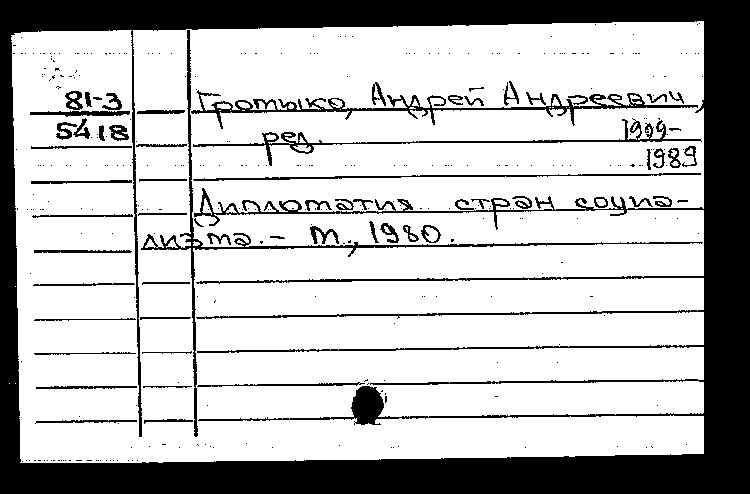 81-3 Громыко, Андрей Андреевич,
5418 ред. 1909-
1989
Дипломатия стран социа-
лизма. - М., 1980.